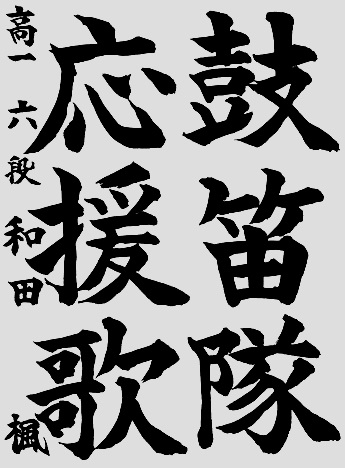 鼓笛隊
応援歌
高一 六段 和田 楓